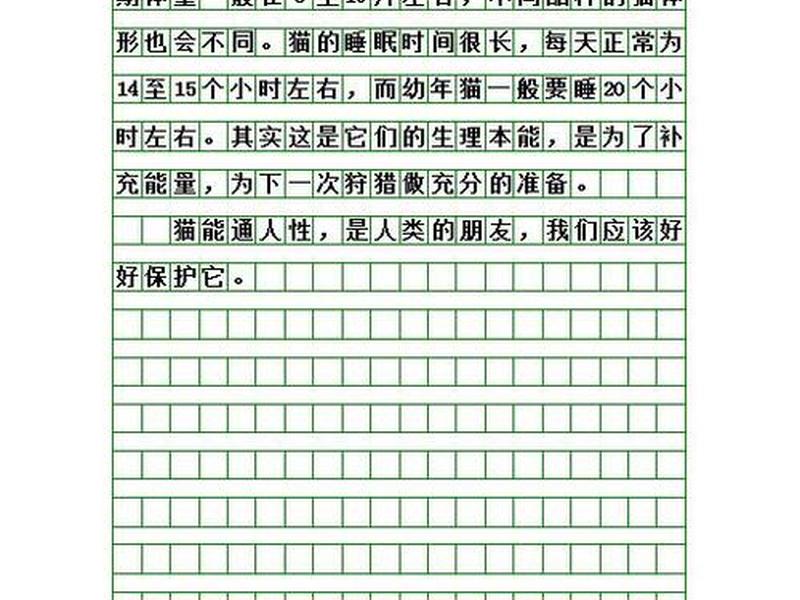 形也会不同。猫的睡眠时间很长，每天正常为
14至15个小时左右，而幼年猫一般要睡20个小
时左右。其实这是它们的生理本能，是为了补
充能量，为下一次狩猎做充分的准备。
猫能通人性，是人类的朋友，我们应该好
好保护它。